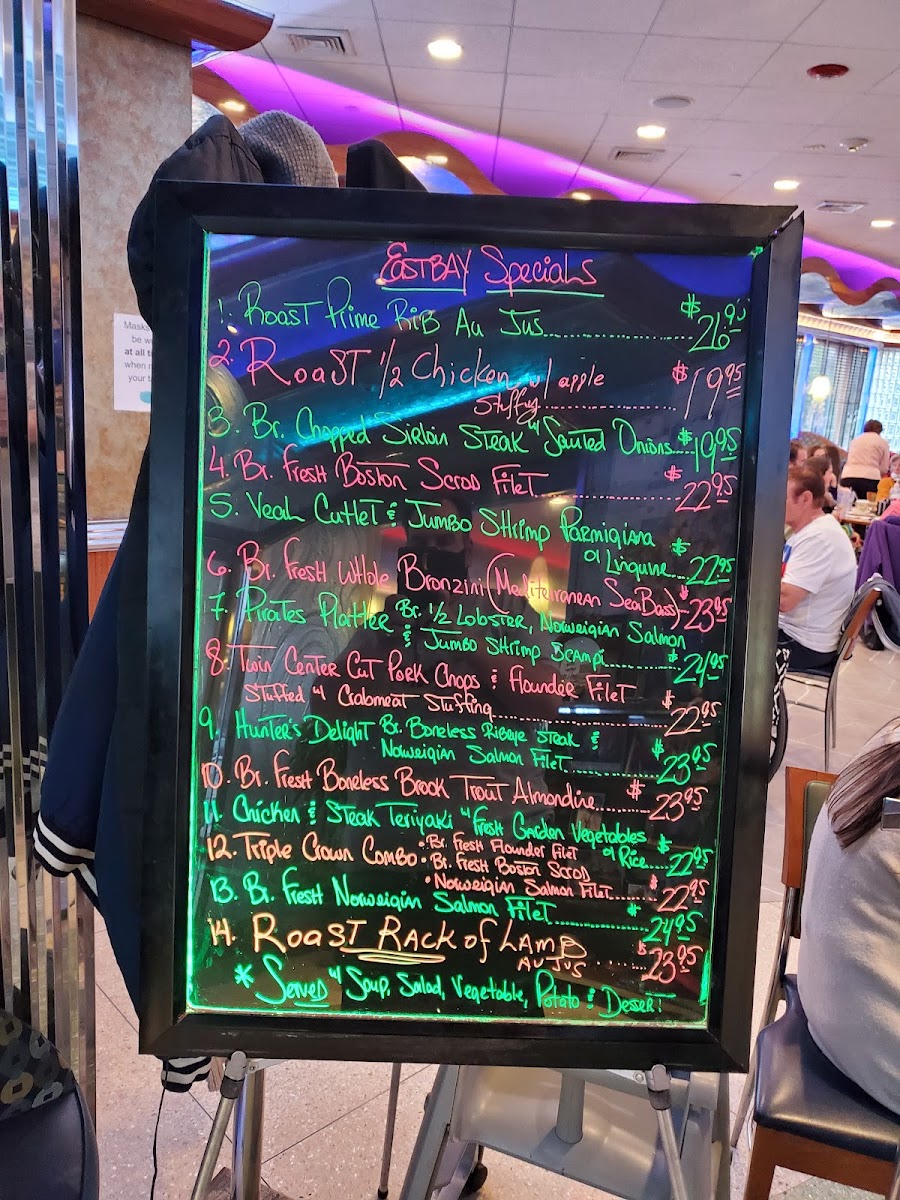 Masks
be wo
at all ti
when n
your ta
EASTBAY Specials
1. Roast Prime Rib Au Jus........ $26.90
2. Roast 1/2 Chicken w/ apple
stuffing........ $19.95
3. Br. Chopped Sirloin Steak w/ Sauted Onions..... $19.95
4. Br. Fresh Boston Scrod Filet........ $22.95
5. Veal Cutlet & Jumbo Shrimp Parmigiana
o/ Linguine.... $22.95
6. Br. Fresh Whole Bronzini (Mediterranean Sea Bass)-$23.95
7. Pirates Platter Br. 1/2 Lobster, Norweigian Salmon
& Jumbo Shrimp Scampi........ $24.95
8. Twin Center Cut Pork Chops & Flounder Filet
Stuffed w/ Crabmeat Stuffing........ $22.95
9. Hunter's Delight Br. Boneless Ribeye Steak &
Norweigian Salmon Filet........ $23.95
10. Br. Fresh Boneless Brook Trout Almondine..... $23.95
11. Chicken & Steak Teriyaki w/ Fresh Garden Vegetables
o/ Rice..... $22.95
12. Triple Crown Combo • Br. Fresh Flounder Filet
• Br. Fresh Boston Scrod
• Norweigian Salmon Filet..... $22.95
13. Br. Fresh Norweigian Salmon Filet........ $24.95
14. Roast Rack of Lamb
Au Jus ..... $23.95
* Served w/ Soup, Salad, Vegetable, Potato & Dessert